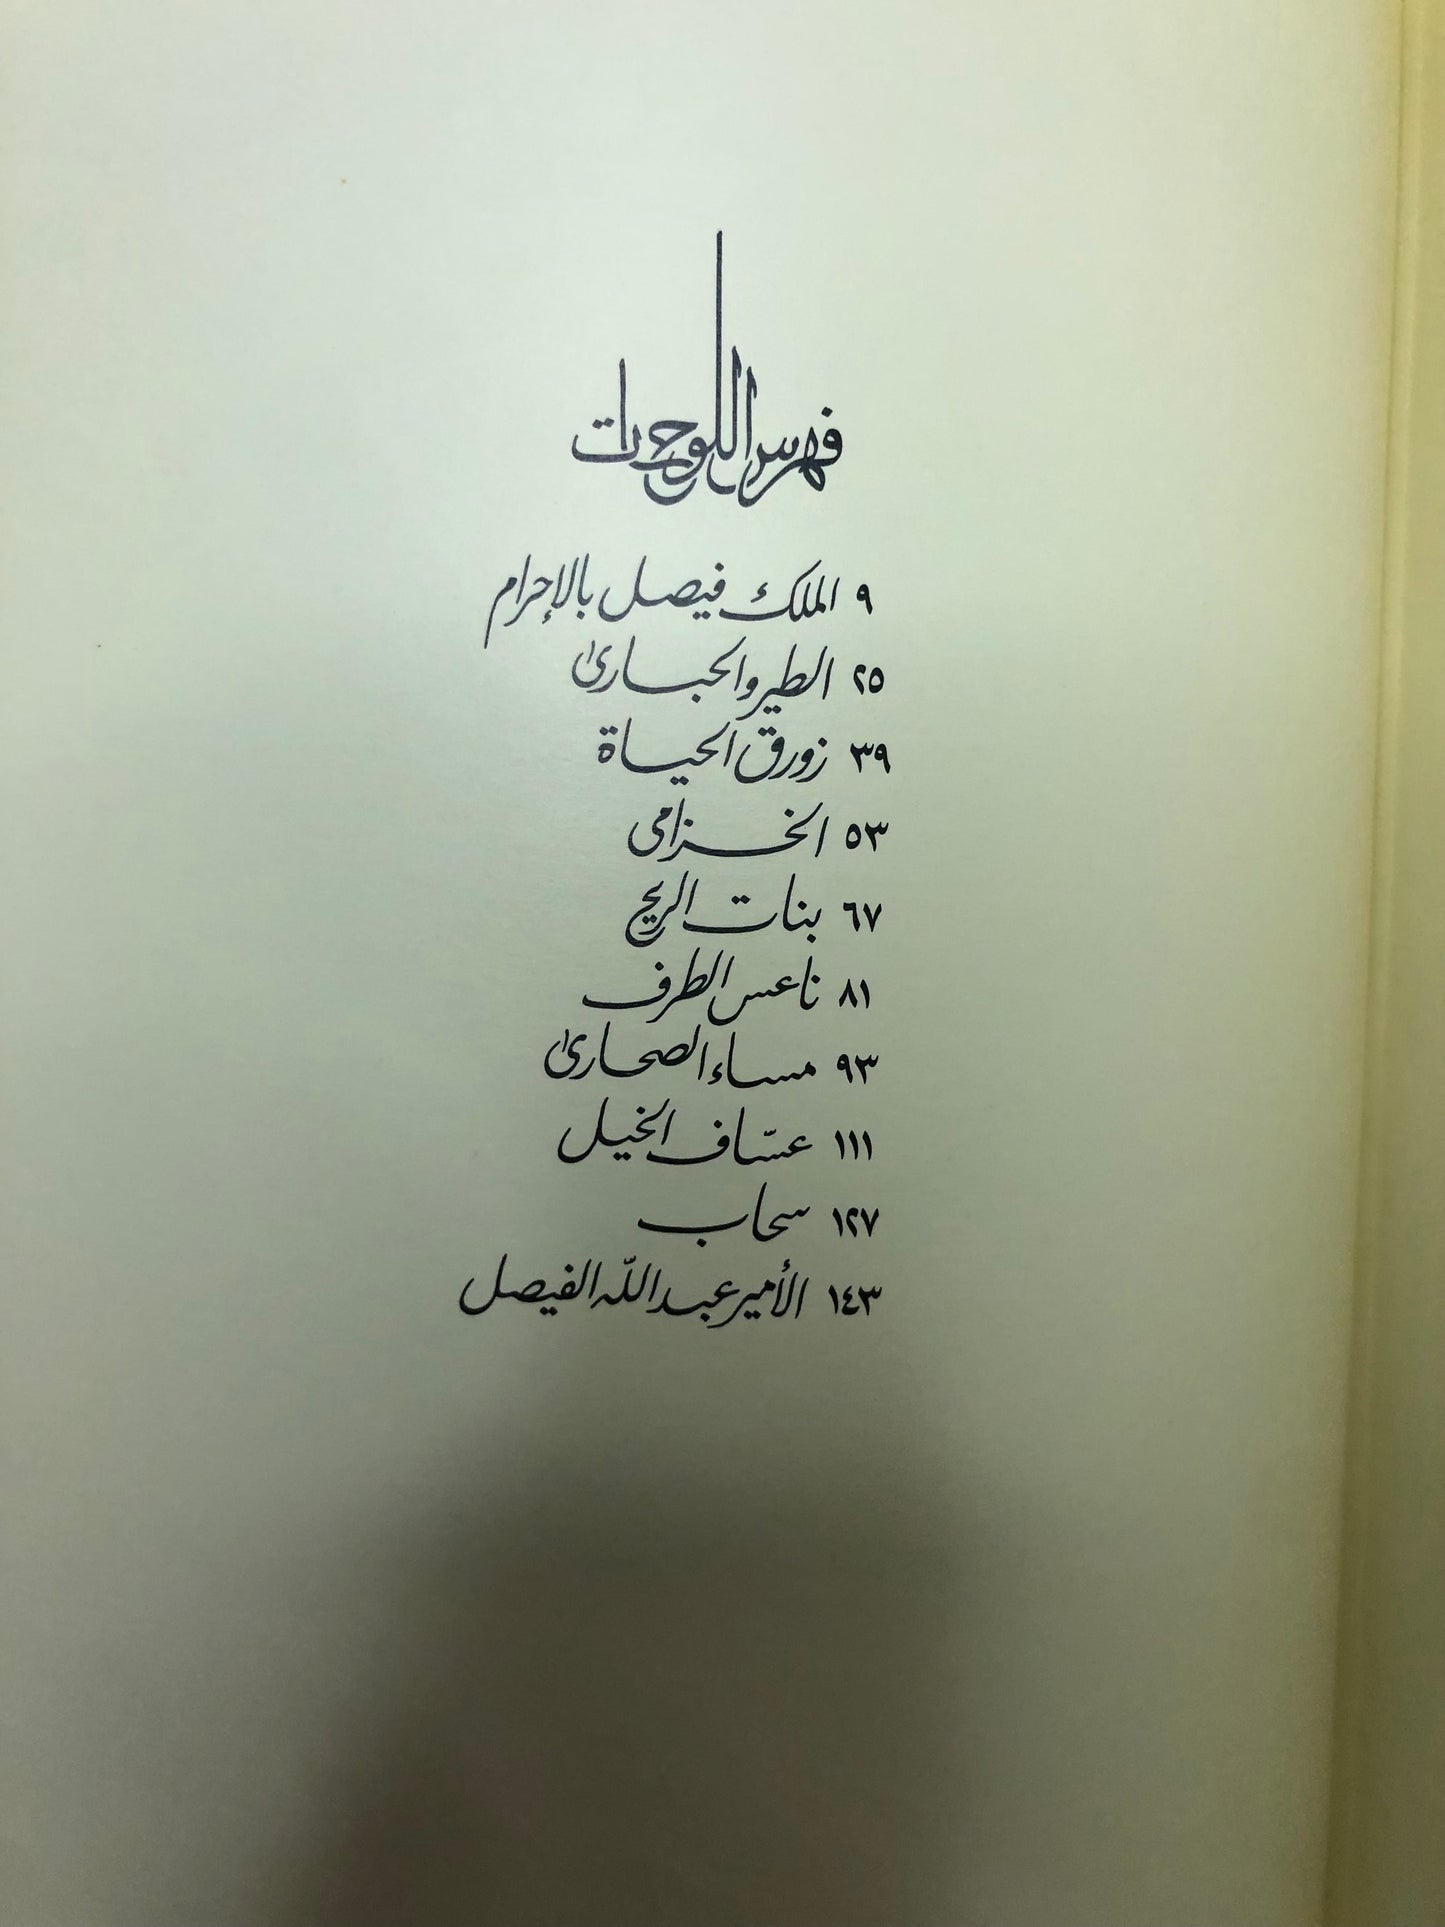 فهرس اللوحات
٩ الملك فيصل بالإحرام
٢٥ الطير والحبارى
٣٩ زورق الحياة
٥٣ الخزامى
٦٧ بنات الريح
٨١ ناعس الطرف
٩٣ مساء الصحارى
١١١ عسّاف الخيل
١٢٧ سحاب
١٤٣ الأمير عبد اللّه الفيصل